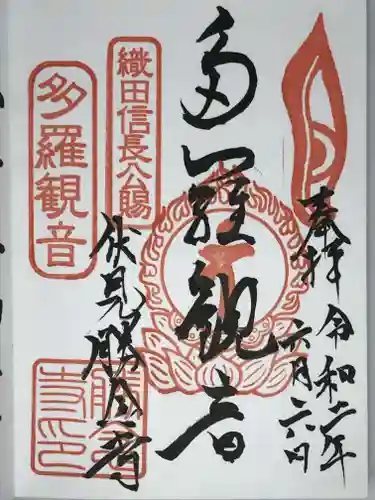 奉拝
令和二年
六月二八日
多羅観音
織田信長公賜
多羅観音
伏見勝念寺
勝念
寺印